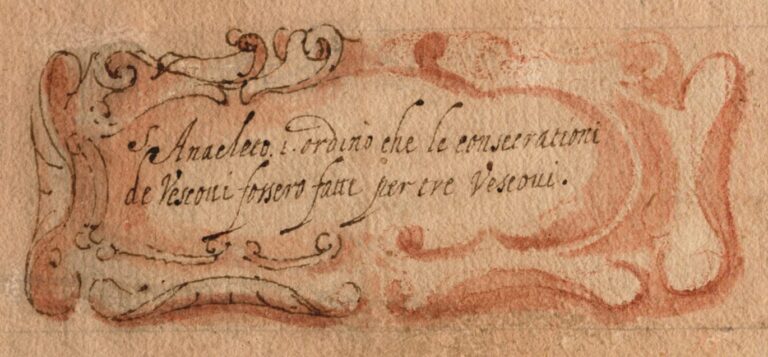 S. Anacleto. i. ordinò che le consecrationi
de Vescoui fossero fatti per tre Vescoui.